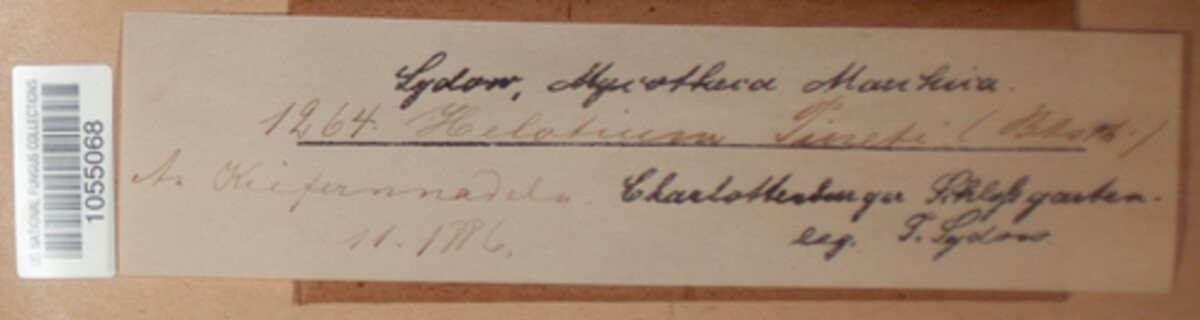 Sydow, Mycotheca Marchica.
1264. Helotium Pineti (Batsch.)
An Kiefernnadeln. Charlottenburger Schloßgarten.
11. 1886.
leg. P. Sydow.
US NATIONAL FUNGUS COLLECTIONS
1055068